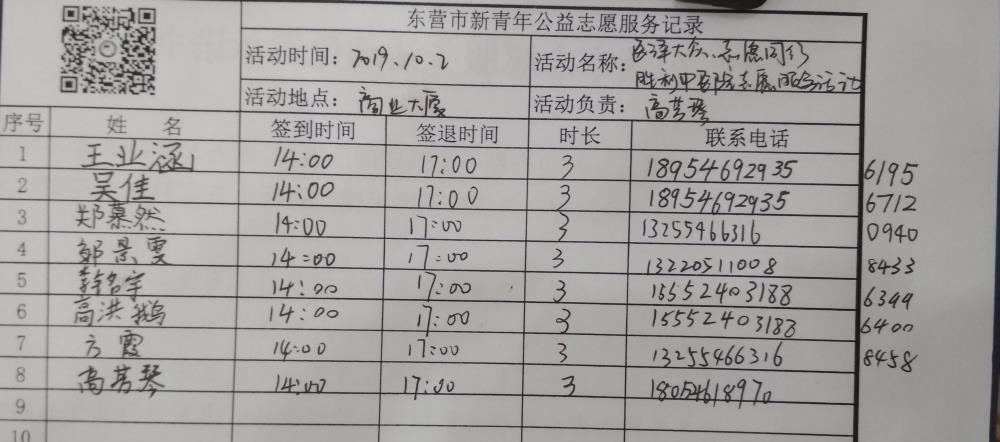 东营市新青年公益志愿服务记录
活动时间： 2019.10.2 活动名称： 大众、志愿同行
胜利中 院志愿服务活动
活动地点： 商业大厦 活动负责： 高芳琴
序号 姓 名 签到时间 签退时间 时长 联系电话
1 王业涵 14:00 17:00 3 18954692935 6195
2 吴佳 14:00 17:00 3 18954692935 6712
3 郑慕然 14:00 17:00 3 13255466316 0940
4 郭景雯 14:00 17:00 3 13220511008 8433
5 14:00 17:00 3 15552403188 6399
6 高洪鹅 14:00 17:00 3 15552403188 6400
7 方霞 14:00 17:00 3 13255466316 8458
8 高芳琴 14:00 17:00 3 18054618970
9
10